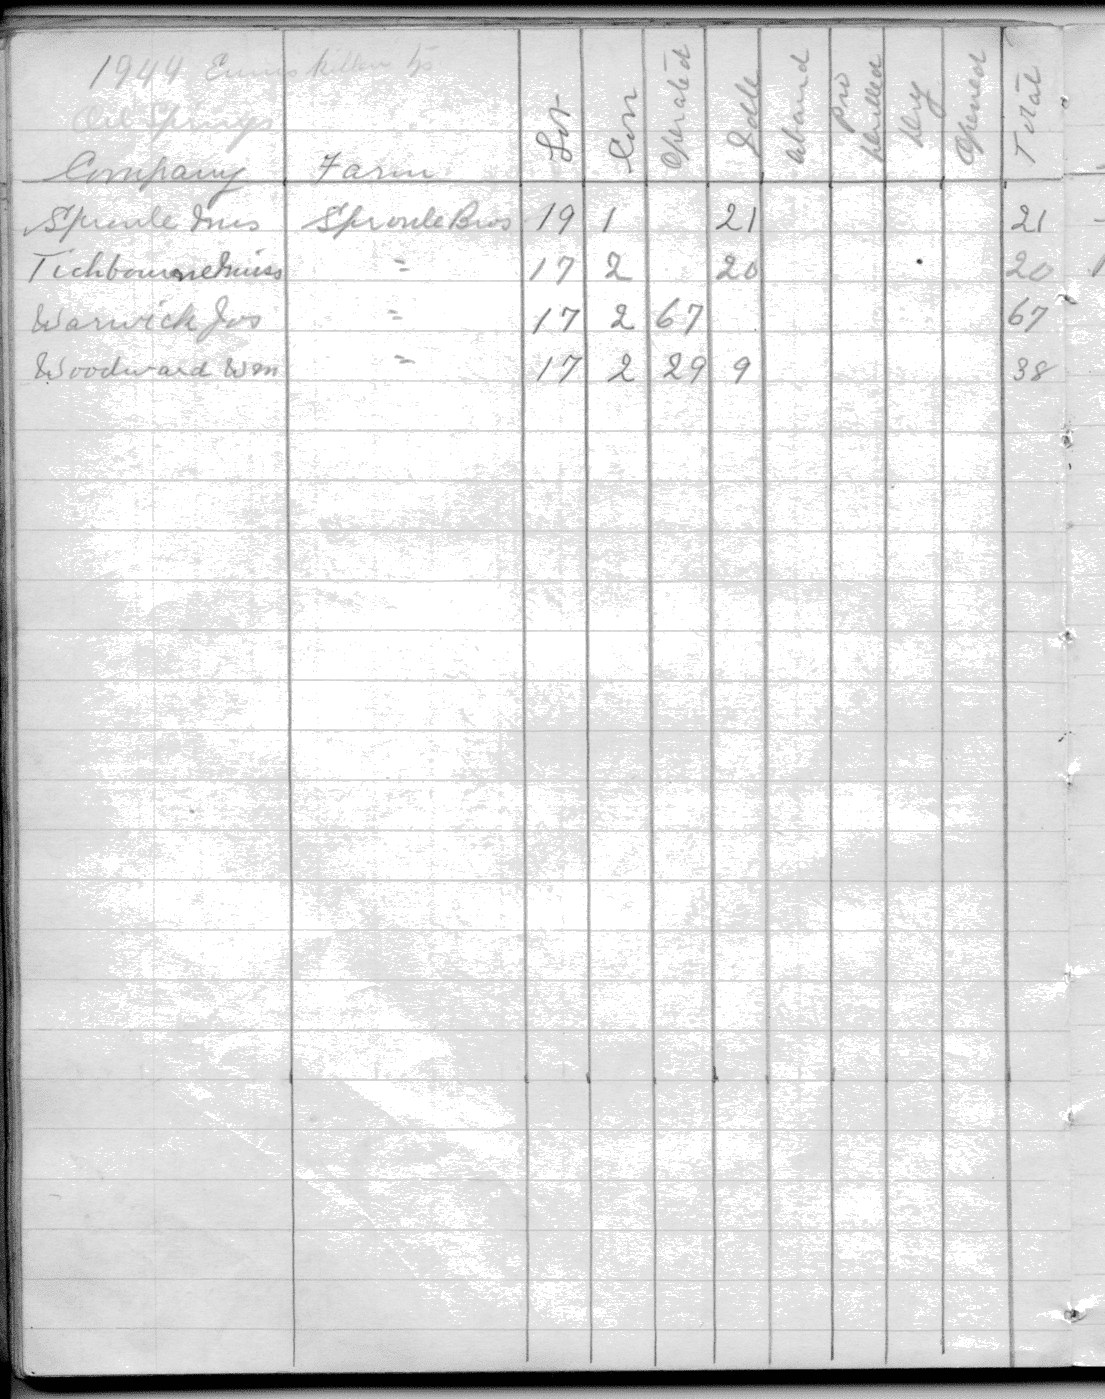 1944 Enniskillen Tp
Oil Springs
Company Farm Lot Con Operated Idle Aband Pro Drilled Dry Opened Total
Sproule Sproule Bros 19 1 21 21
Tichbourne " 17 2 20 20
Warwick Jos " 17 2 67 67
Woodward Wm " 17 2 29 9 38